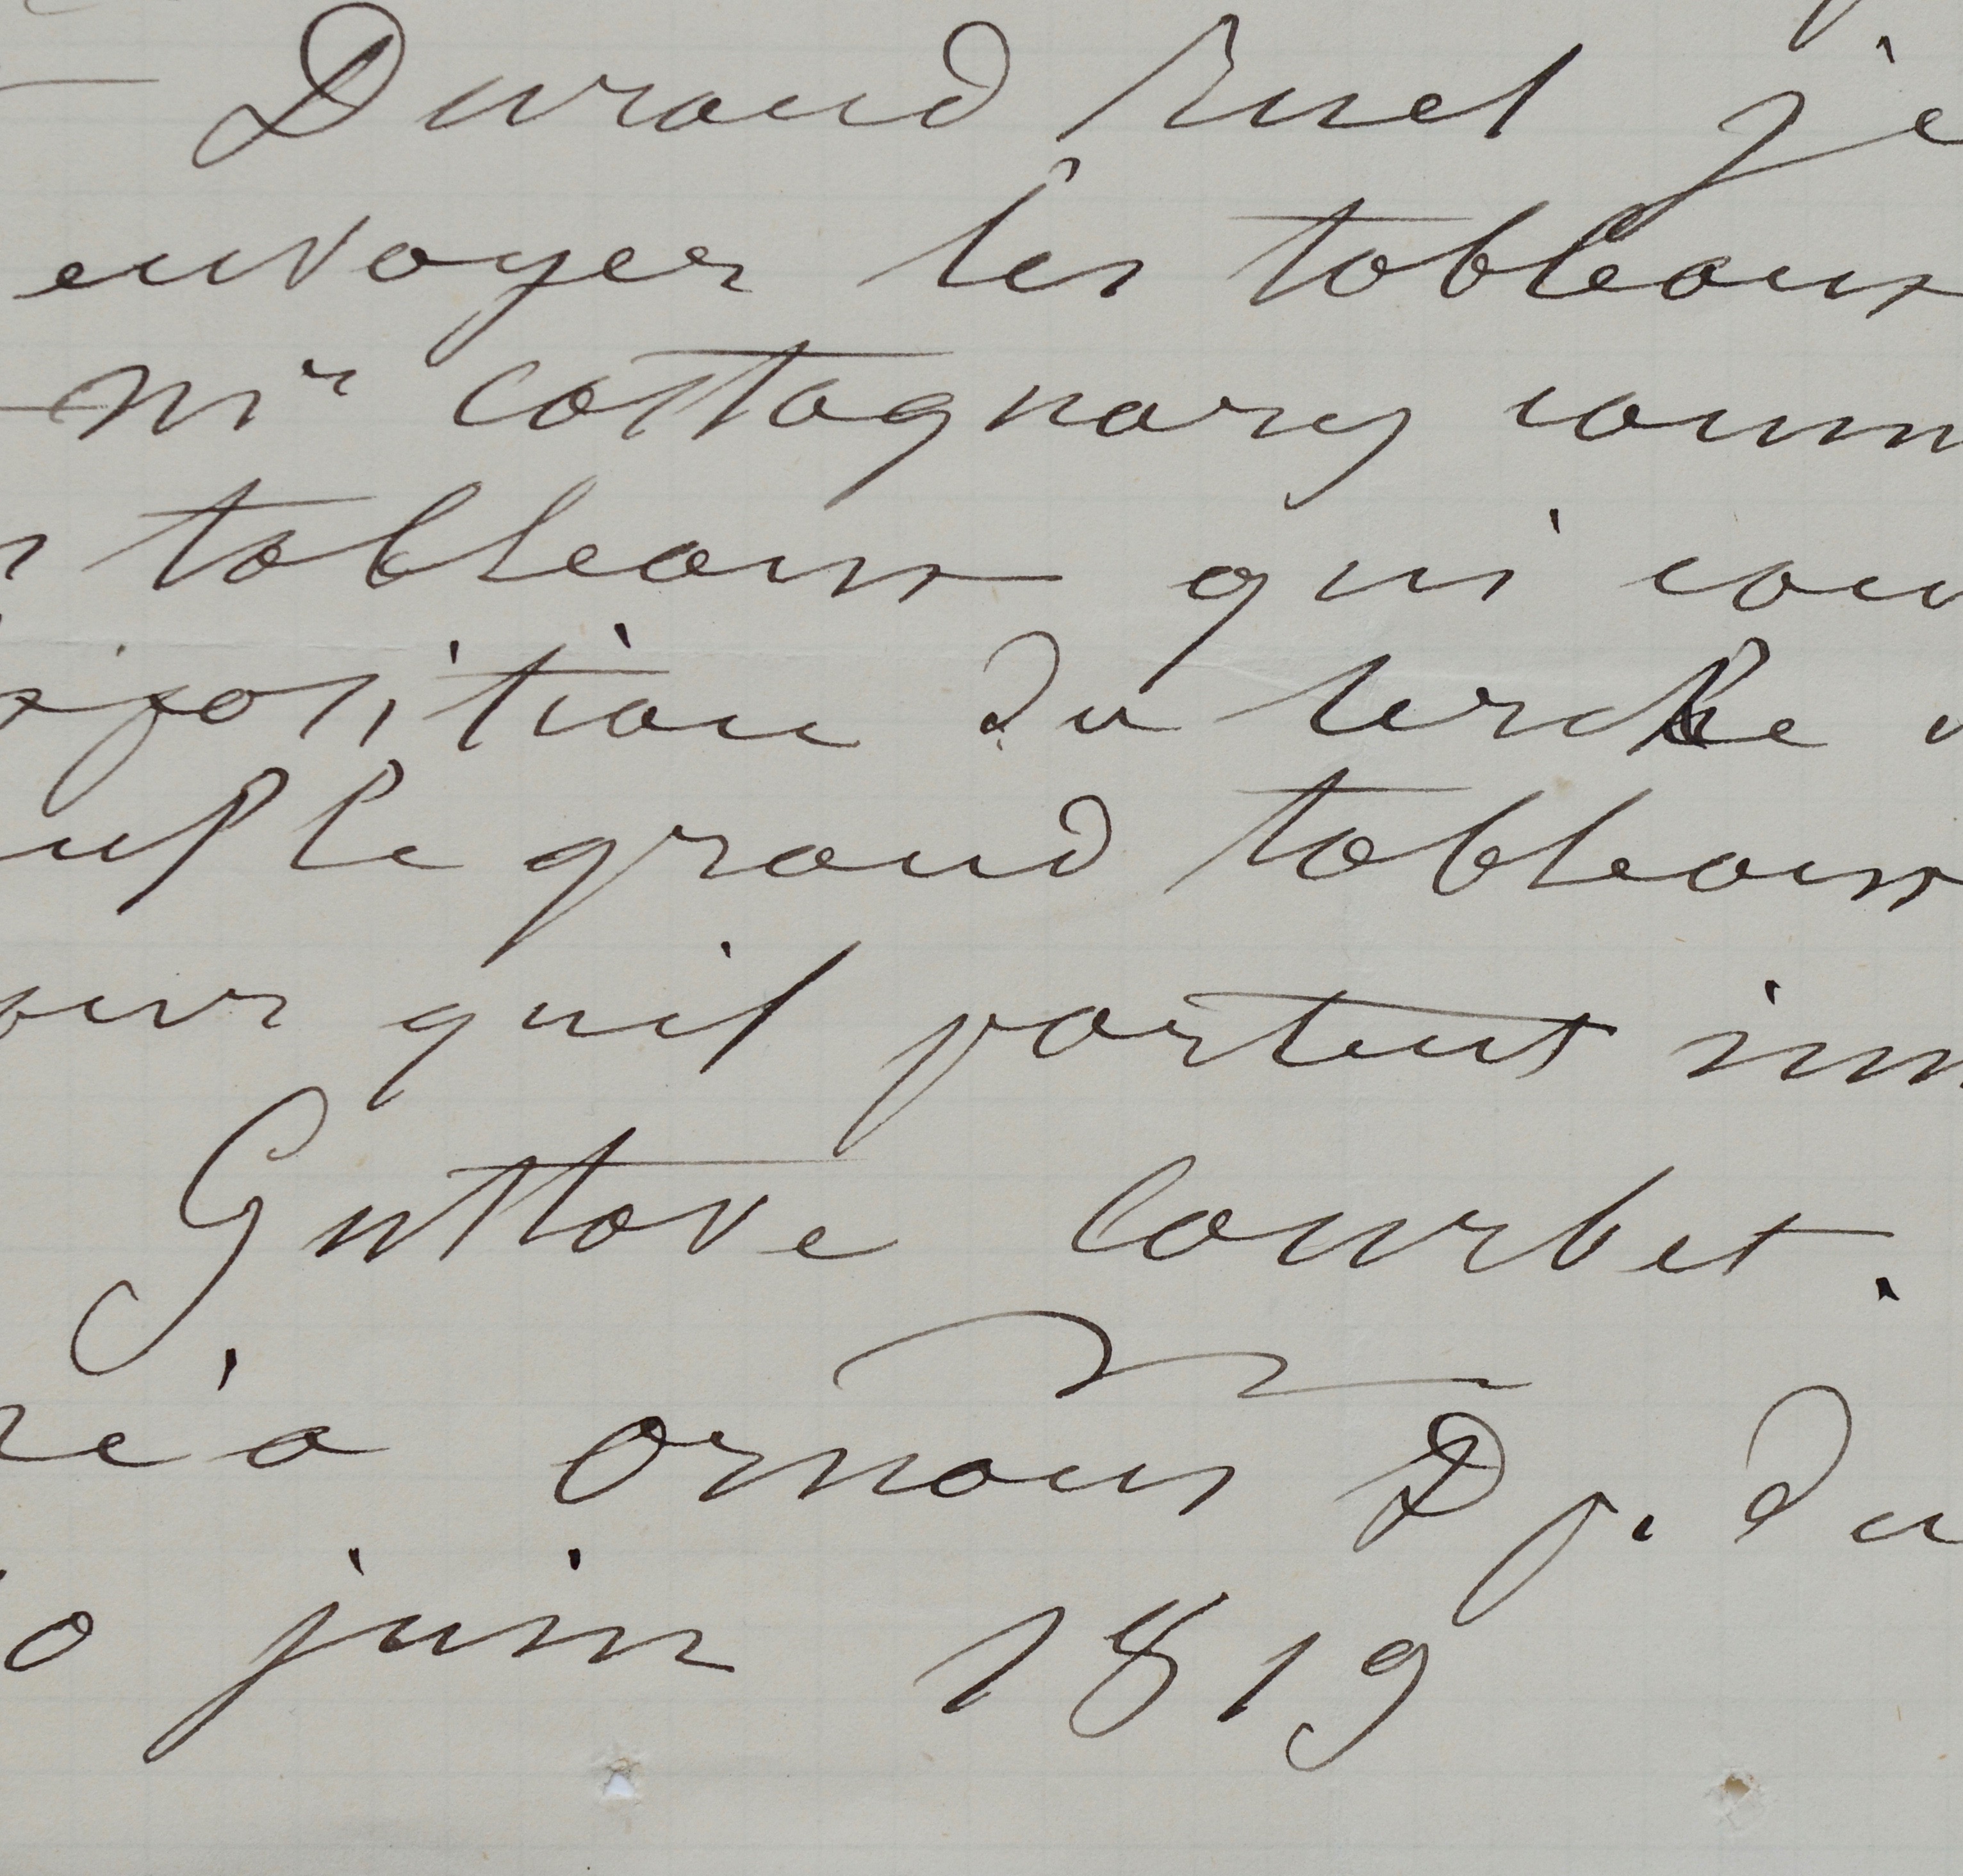 Durand Ruel je
envoyer les tableaux
Mr Castagnary comm
tableaux qui con
xposition du cercle
le grand tableaux
our quil portent imm
Gustave Courbet.
né a Ornans Dp. du
10 juin 1819